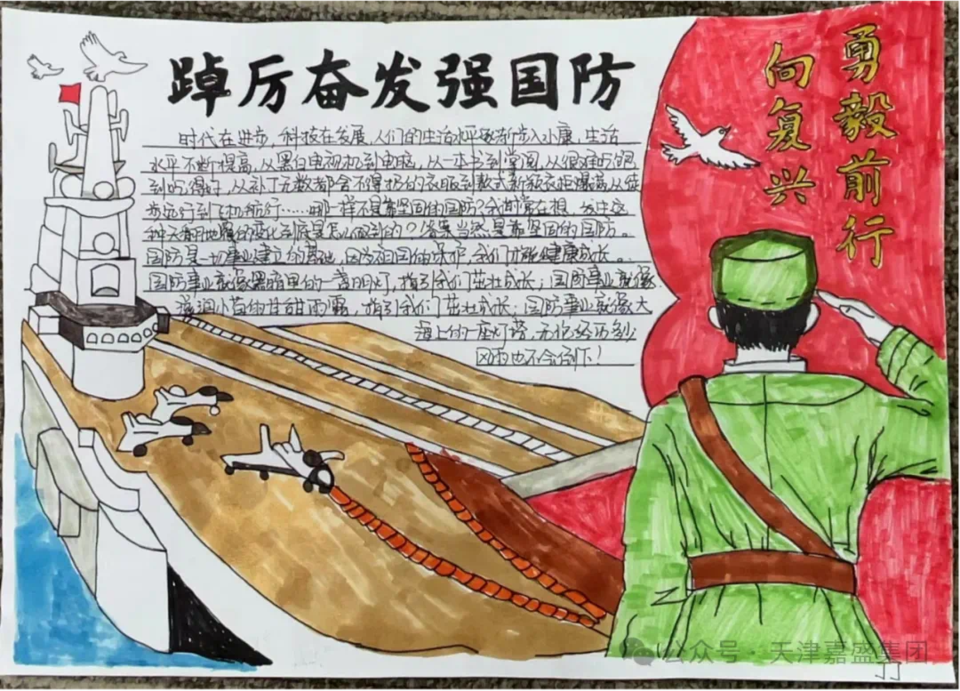 踔厉奋发强国防
勇毅前行
向复兴
时代在进步，科技在发展，人们的生活水平逐渐步入小康，生活
水平不断提高，从黑白电视机到电脑，从一本书到
到吃得好，从补丁无数都舍不得扔的衣服到款式新颖衣柜
步远行到飞机航行……哪一样不是靠坚固的国防？我时常在想，
种天翻地覆的变化到底是怎么做到的？答案当然是靠坚固的国防。
国防是一切事业建立的基地，因为祖国的保护，我们才能健康成长。
国防事业就像黑暗里的一盏明灯，指引我们茁壮成长；国防事业就像
滋润小苗的甘甜雨露，指引我们茁壮成长；国防事业就像大
海上的一座灯塔，无论经历多少
风雨也不会倒下！
公众号·天津嘉盛集团